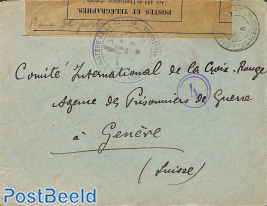 POSTES ET TELEGRAPHES
Comité International de la Croix-Rouge
Agence des Prisonniers de Guerre
à Genève
(Suisse)
PostBeeld